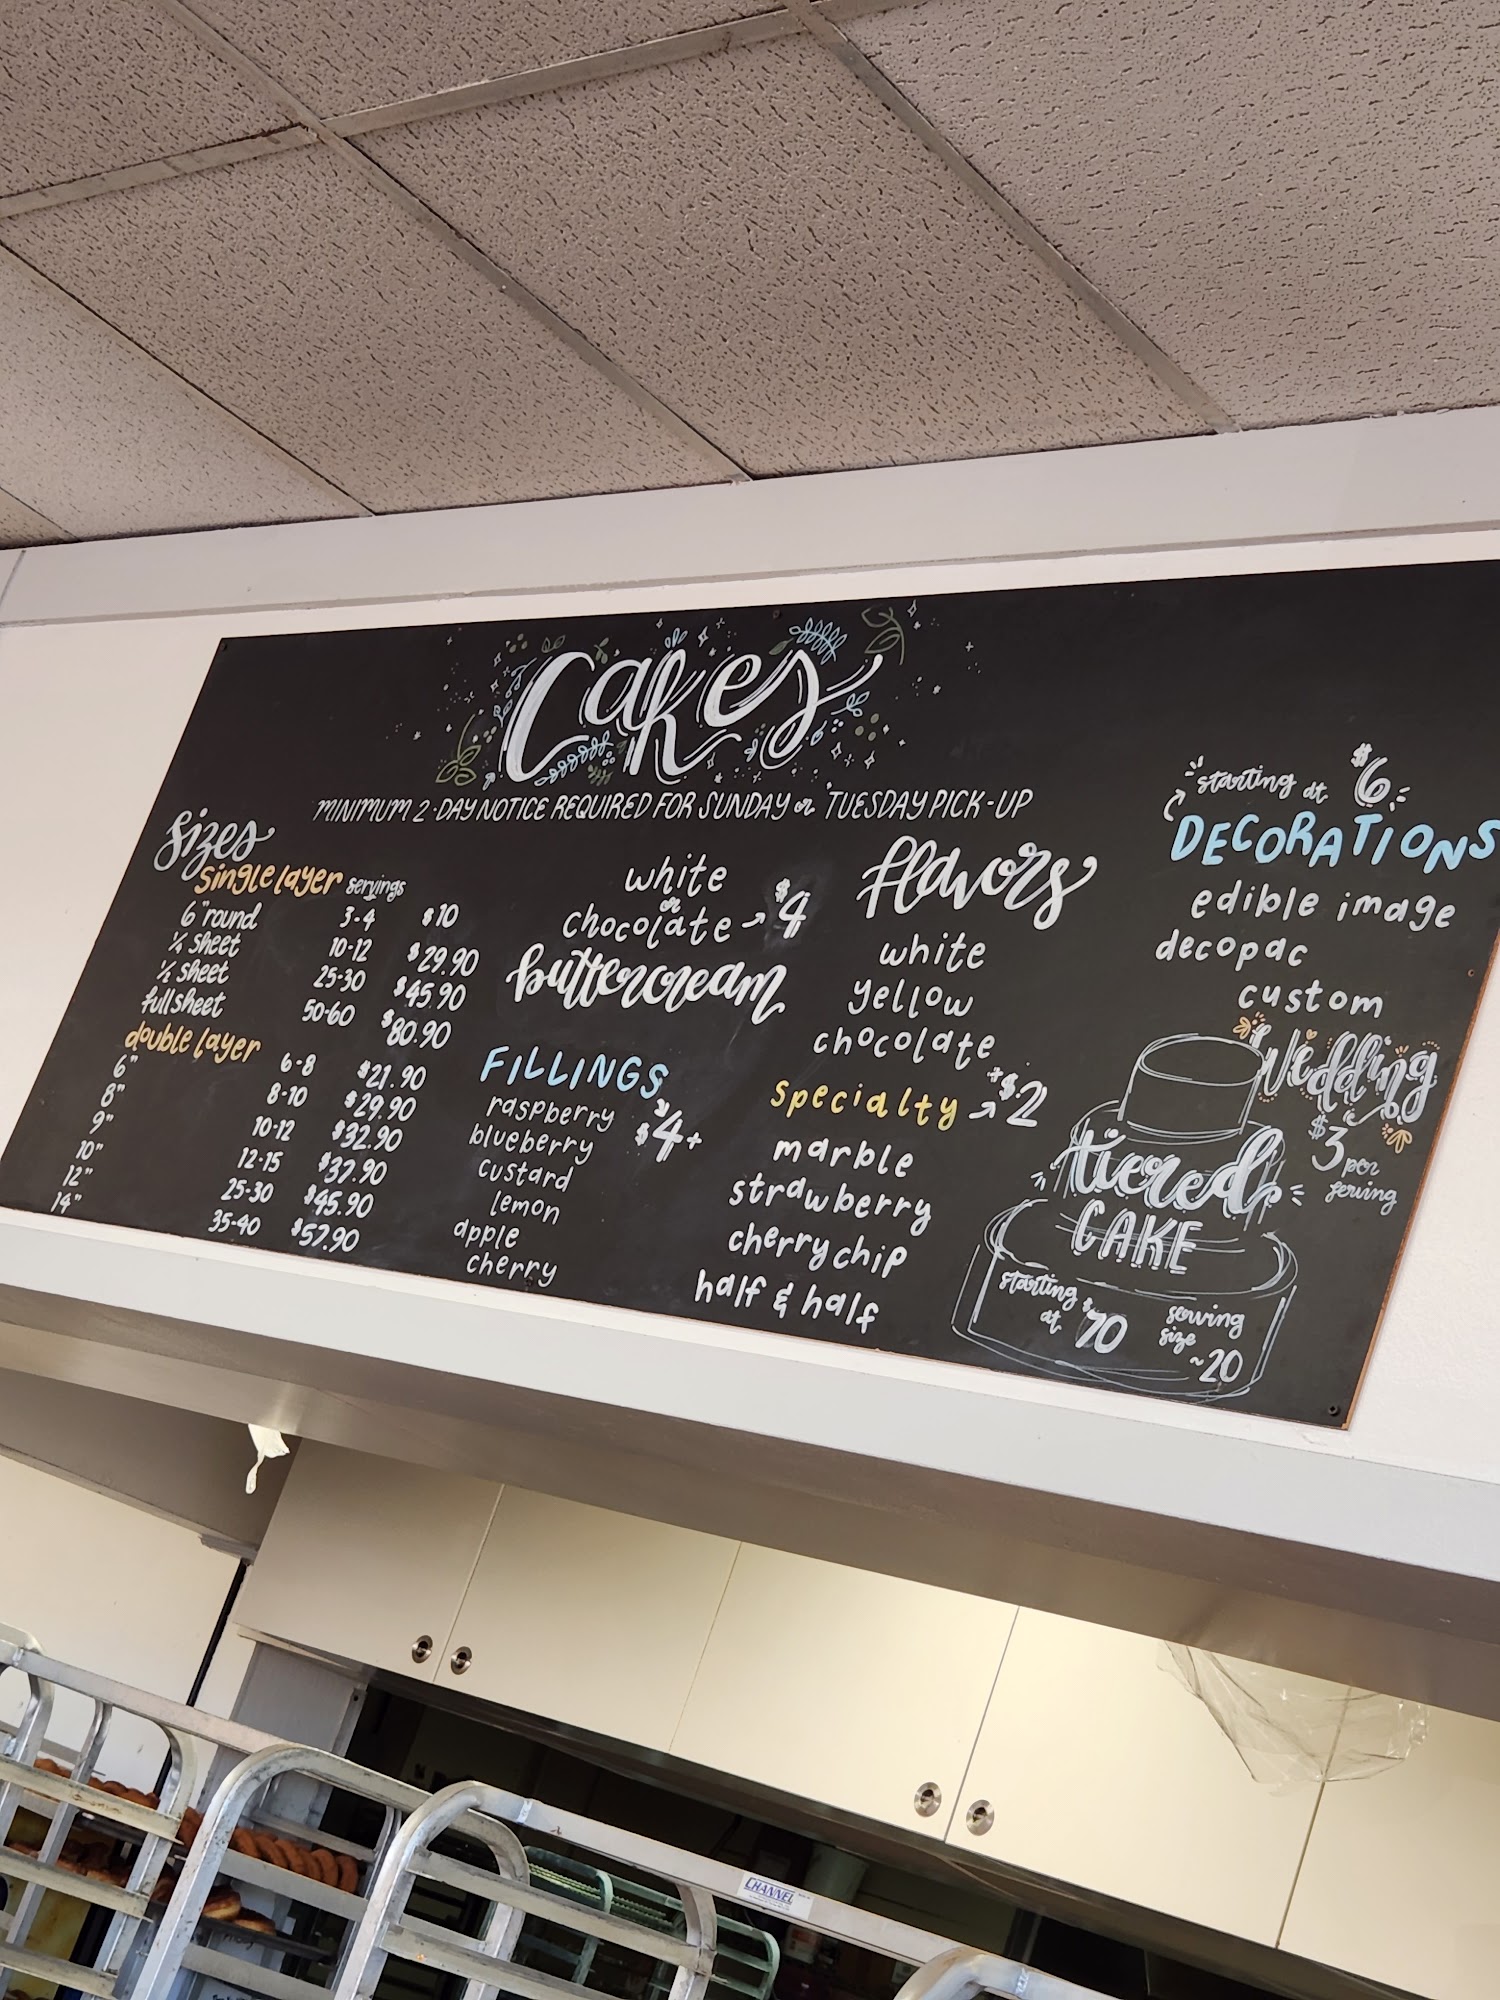 Cakes
MINIMUM 2-DAY NOTICE REQUIRED FOR SUNDAY or TUESDAY PICK-UP
Sizes
single layer servings
6" round 3-4 $10
1/4 sheet 10-12 $29.90
1/2 sheet 25-30 $45.90
full sheet 50-60 $80.90
double layer
6" 6-8 $21.90
8" 8-10 $29.90
9" 10-12 $32.90
10" 12-15 $37.90
12" 25-30 $45.90
14" 35-40 $57.90
white
or
chocolate → $4
buttercream
FILLINGS
$4+
raspberry
blueberry
custard
lemon
apple
cherry
flavors
white
yellow
chocolate
specialty → +$2
marble
strawberry
cherry chip
half & half
starting at $6
DECORATIONS
edible image
decopac
custom
Wedding
$3 per
serving
tiered
CAKE
starting
at $70
serving
size
~20
CHANNEL